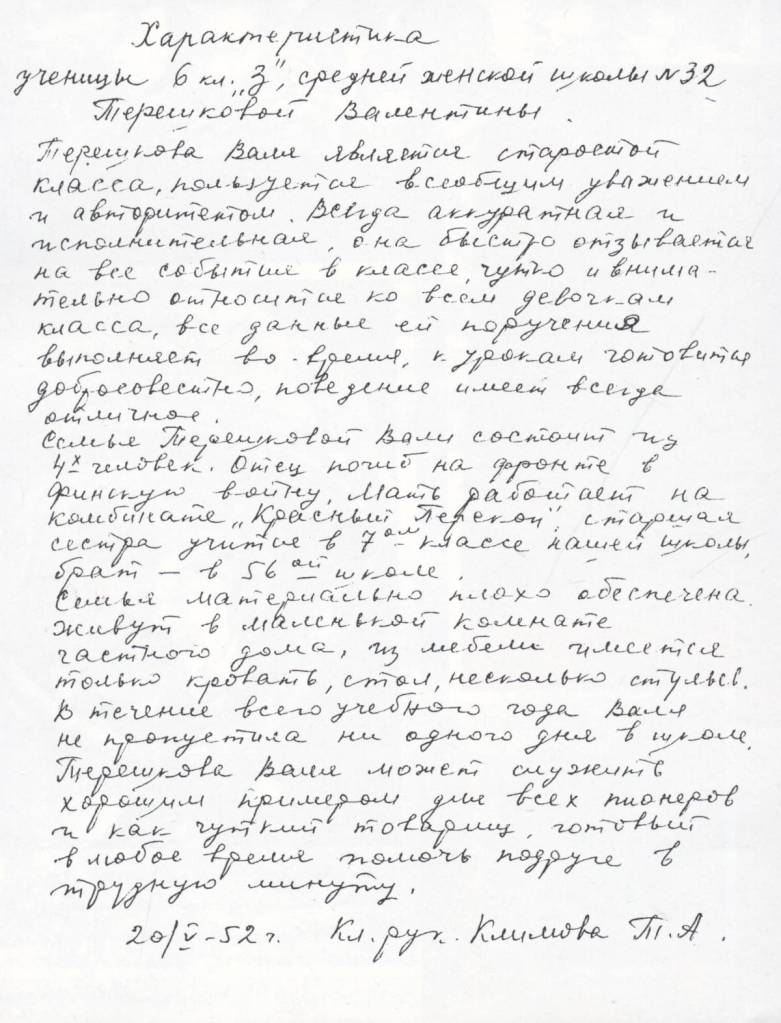 Характеристика
ученицы 6 кл. „З", средней женской школы №32
Терешковой Валентины.
Терешкова Валя является старостой
класса, пользуется всеобщим уважением
и авторитетом. Всегда аккуратная и
исполнительная, она быстро отзывается
на все события в классе, чутко и внима-
тельно относится ко всем девочкам
класса, все данные ей поручения
выполняет во-время, к урокам готовится
добросовестно, поведение имеет всегда
отличное.
Семья Терешковой Вали состоит из
4х человек. Отец погиб на фронте в
финскую войну, мать работает на
комбинате „Красный Перекоп", старшая
сестра учится в 7ом классе нашей школы,
брат – в 56ой школе.
Семья материально плохо обеспечена.
Живут в маленькой комнате
частного дома, из мебели имеется
только кровать, стол, несколько стульев.
В течение всего учебного года Валя
не пропустила ни одного дня в школе.
Терешкова Валя может служить
хорошим примером для всех пионеров
и как чуткий товарищ, готовый
в любое время помочь подруге в
трудную минуту.
20/V-52 г. Кл. рук. Климова Т.А.